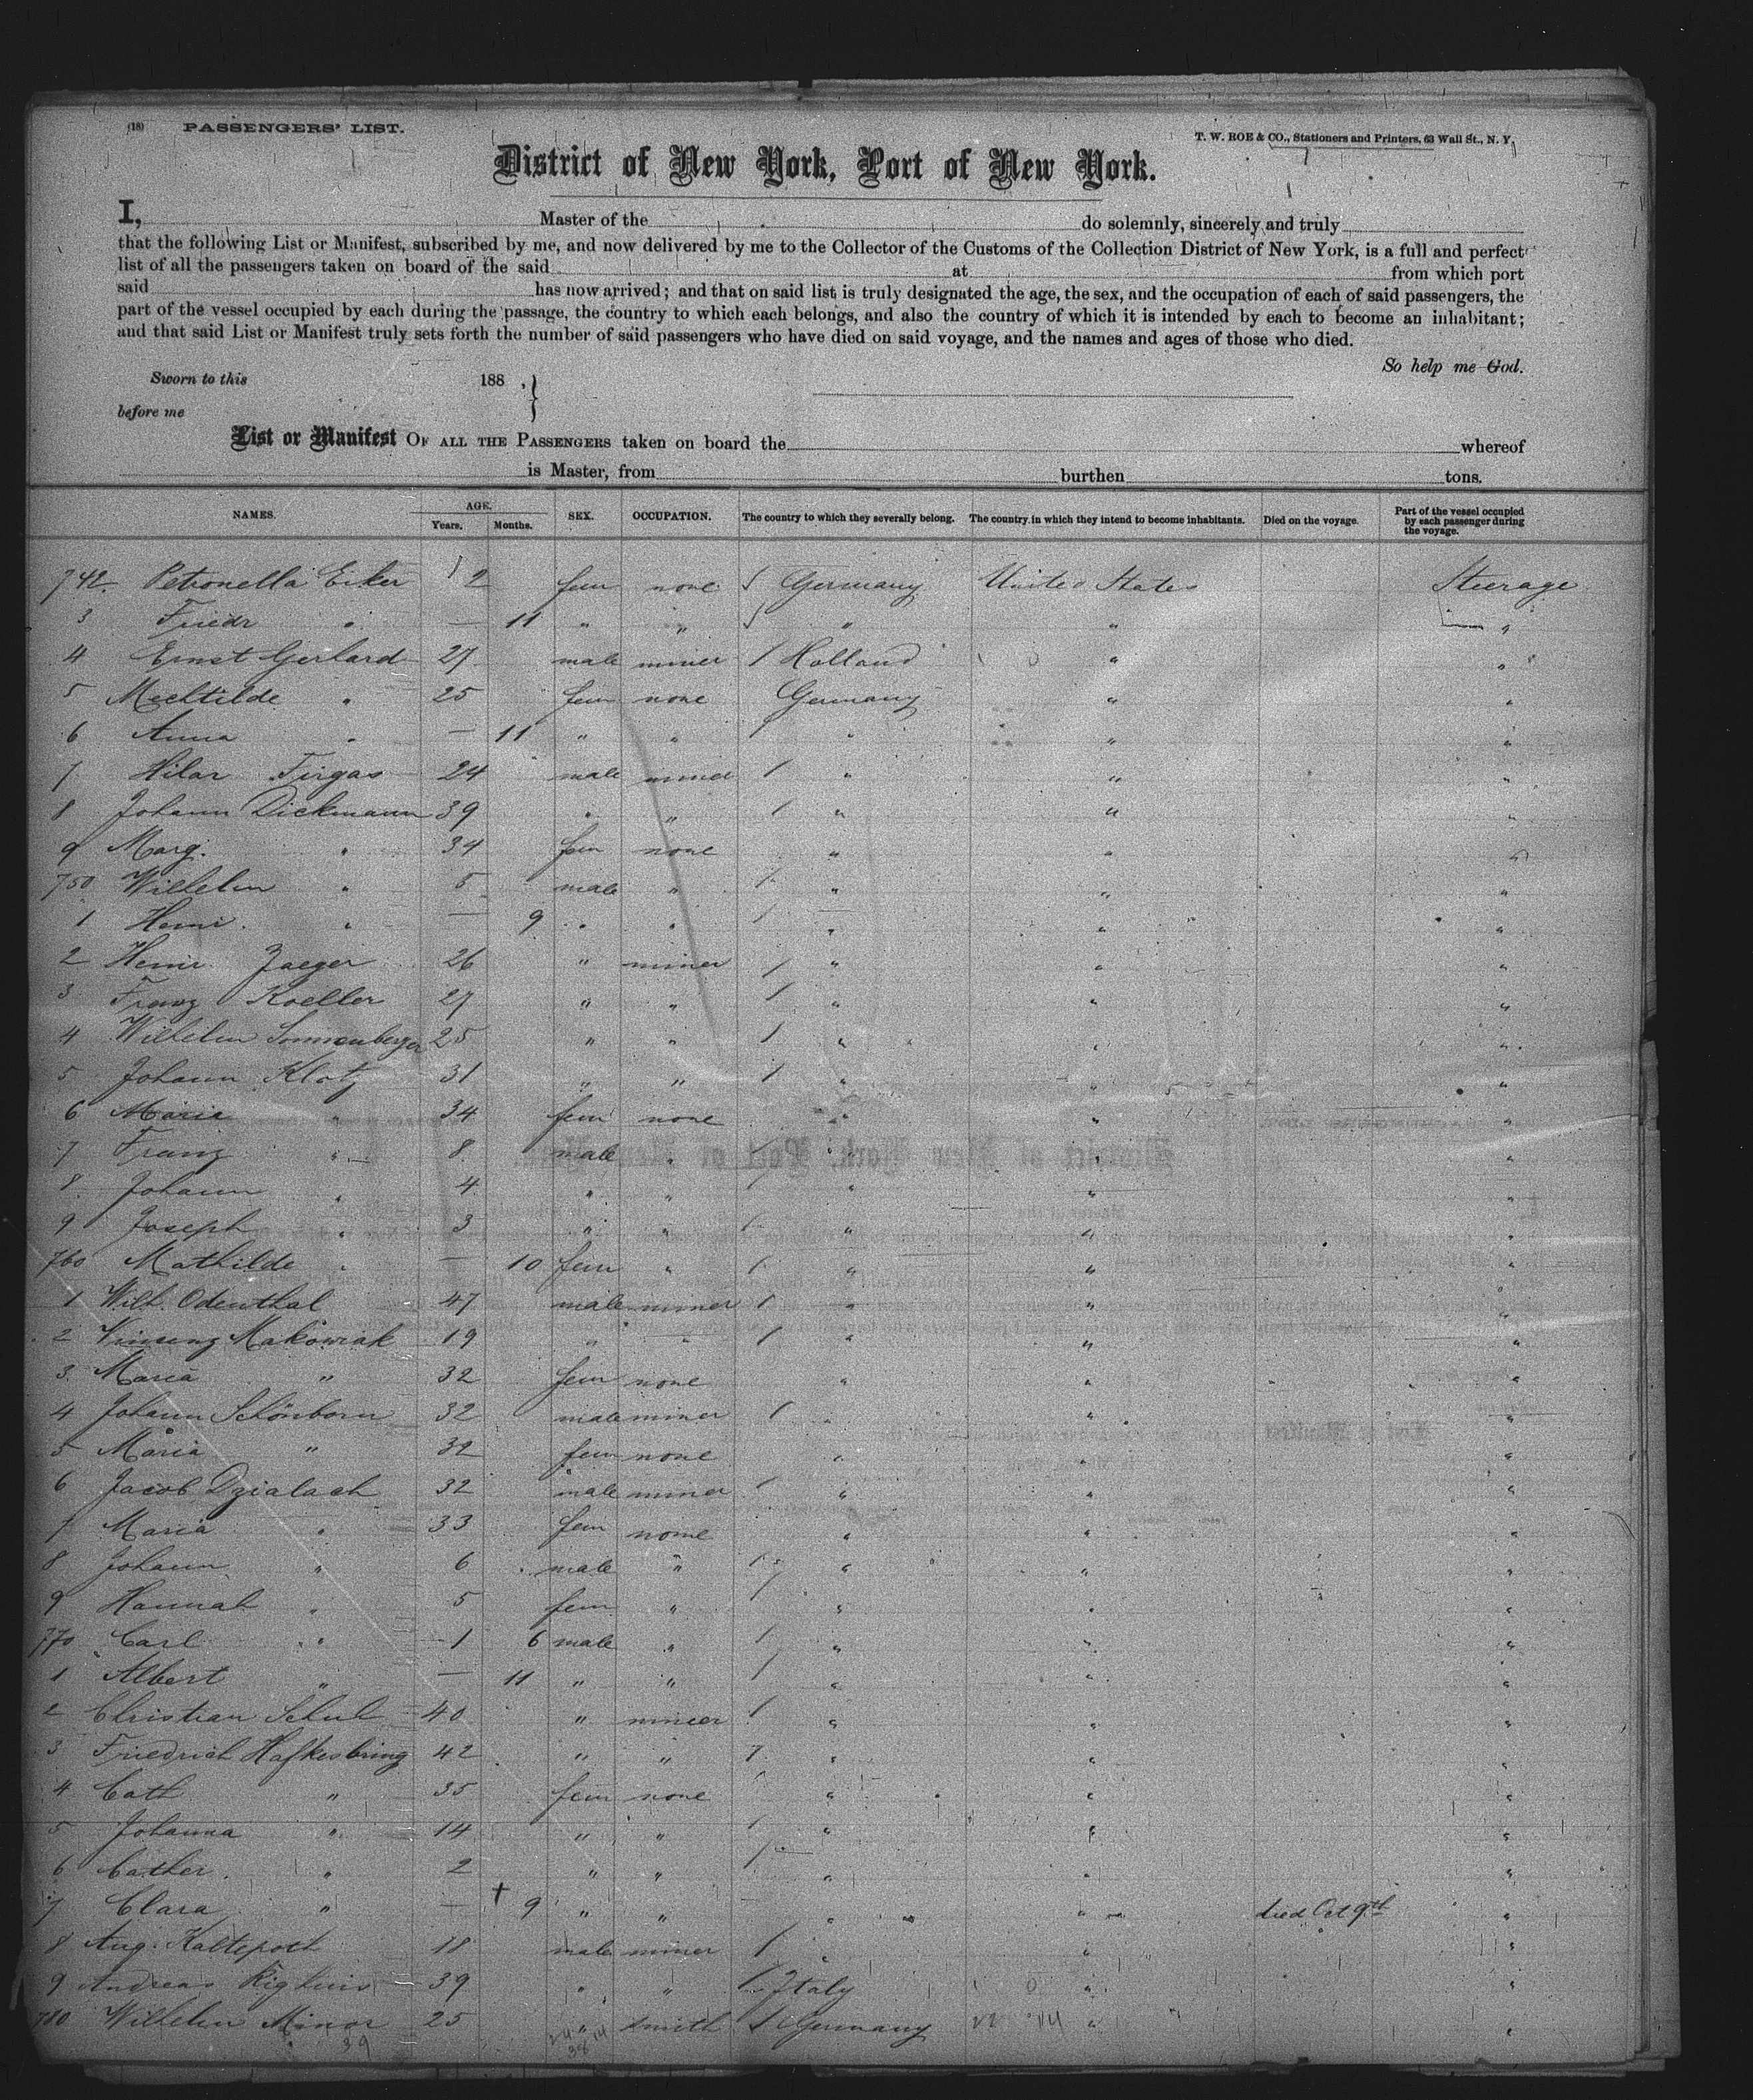 (18) PASSENGERS' LIST.
T. W. ROE & CO., Stationers and Printers, 63 Wall St., N. Y.
District of New York, Port of New York.
I, Master of the do solemnly, sincerely and truly
that the following List or Manifest, subscribed by me, and now delivered by me to the Collector of the Customs of the Collection District of New York, is a full and perfect
list of all the passengers taken on board of the said at from which port
said has now arrived; and that on said list is truly designated the age, the sex, and the occupation of each of said passengers, the
part of the vessel occupied by each during the passage, the country to which each belongs, and also the country of which it is intended by each to become an inhabitant;
and that said List or Manifest truly sets forth the number of said passengers who have died on said voyage, and the names and ages of those who died.
So help me God.
Sworn to this 188 , }
before me
List or Manifest OF ALL THE PASSENGERS taken on board the whereof
is Master, from burthen tons.
NAMES. AGE. Years. Months. SEX. OCCUPATION. The country to which they severally belong. The country in which they intend to become inhabitants. Died on the voyage. Part of the vessel occupied by each passenger during the voyage.
742. Petronella Erker 2 fem none Germany United States Steerage
3 Friedr " — 11 " " " " "
4 Ernst Gerhard 27 male miner 1 Holland " "
5 Mechtilde " 25 fem none Germany " "
6 Anna " — 11 " " 1 " " "
7 Hilar Firgas 24 male miner 1 " " "
8 Johann Dickmann 39 " " 1 " " "
9 Marg. " 34 fem none " " "
750 Wilhelm " 5 male " 1 " " "
1 Henr. " — 9 " " 1 " " "
2 Henr. Jaeger 26 " miner 1 " " "
3 Franz Koeller 27 " " 1 " " "
4 Wilhelm Sonnenberger 25 " " 1 " " "
5 Johann Klotz 31 " " 1 " " "
6 Maria " 34 fem none " " "
7 Franz " 8 male " 1 " " "
8 Johann " 4 " " 1 " " "
9 Joseph " 3 " " 1 " " "
760 Mathilde " — 10 fem " 1 " " "
1 Wilh. Odenthal 47 male miner 1 " " "
2 Vinzenz Makowiak 19 " " 1 " " "
3 Maria " 32 fem none " " "
4 Johann Schönborn 32 male miner 1 " " "
5 Maria " 32 fem none " " "
6 Jacob Dzialach 32 male miner 1 " " "
7 Maria " 33 fem none " " "
8 Johann " 6 male " 1 " " "
9 Hannah " 5 fem " 1 " " "
770 Carl " 1 6 male " 1 " " "
1 Albert " — 11 " " 1 " " "
2 Christian Schuh 40 " miner 1 " " "
3 Friedrich Hafkesbring 42 " " 1 " " "
4 Cath " 35 fem none " " "
5 Johanna " 14 " " 1 " " "
6 Cather. " 2 " " 1 " " "
7 Clara " — † 9 " " " " died Oct 9th "
8 Aug. Kaltepoth 18 male miner 1 " " "
9 Andreas 39 " " 1 Italy " "
780 Wilhelm Minor 25 " smith 1 Germany 22 14 " "
39 24 14
38